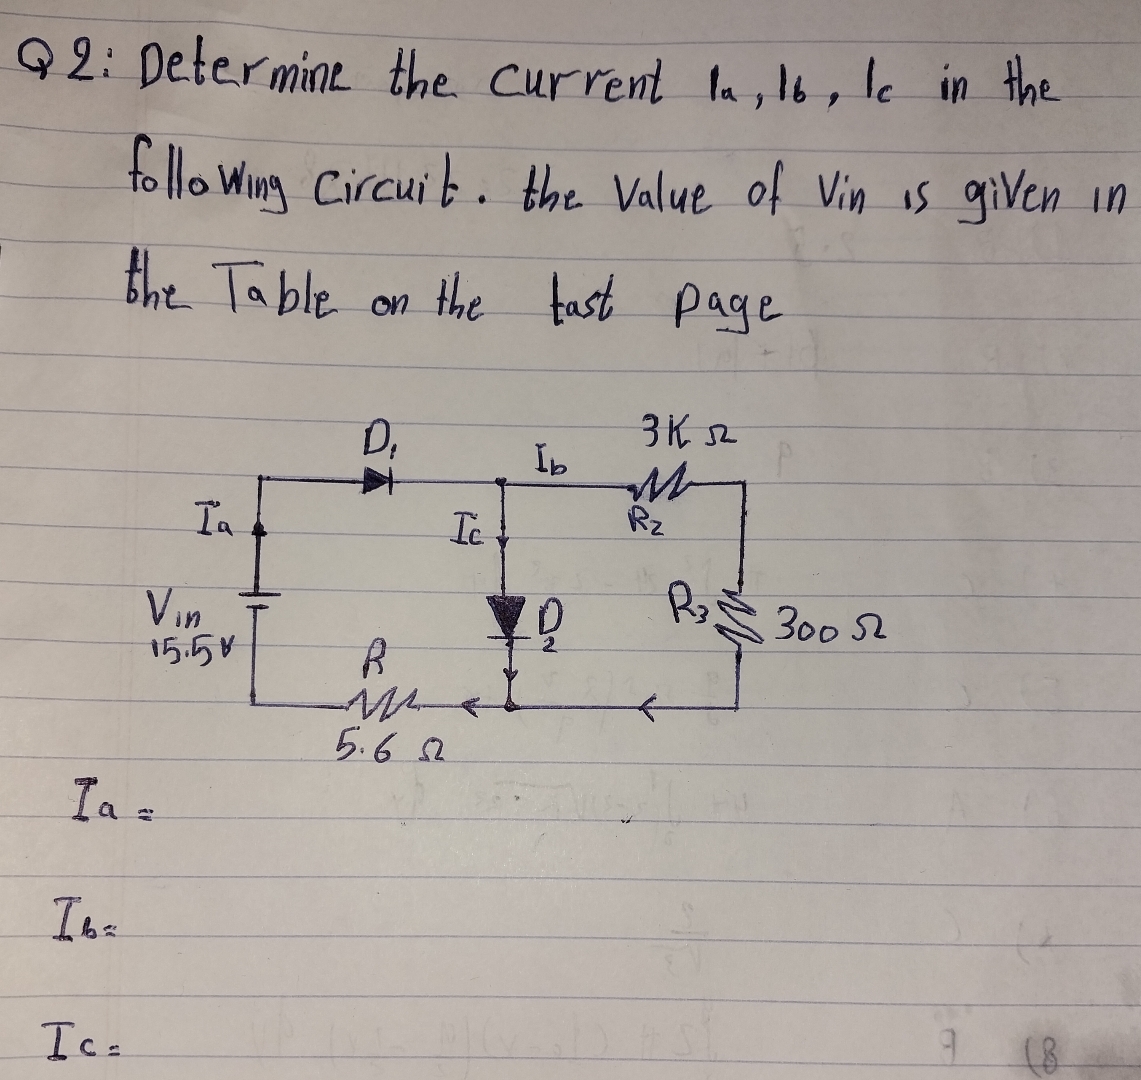 Q2: Determine the current Ia, Ib, Ic in the
following circuit. the Value of Vin is given in
the Table on the tast page
D1
3K Ω
Ib
Ia
Ic
R2
Vin
15.5V
D2
R3
300 Ω
R
5.6 Ω
Ia =
Ib=
Ic=